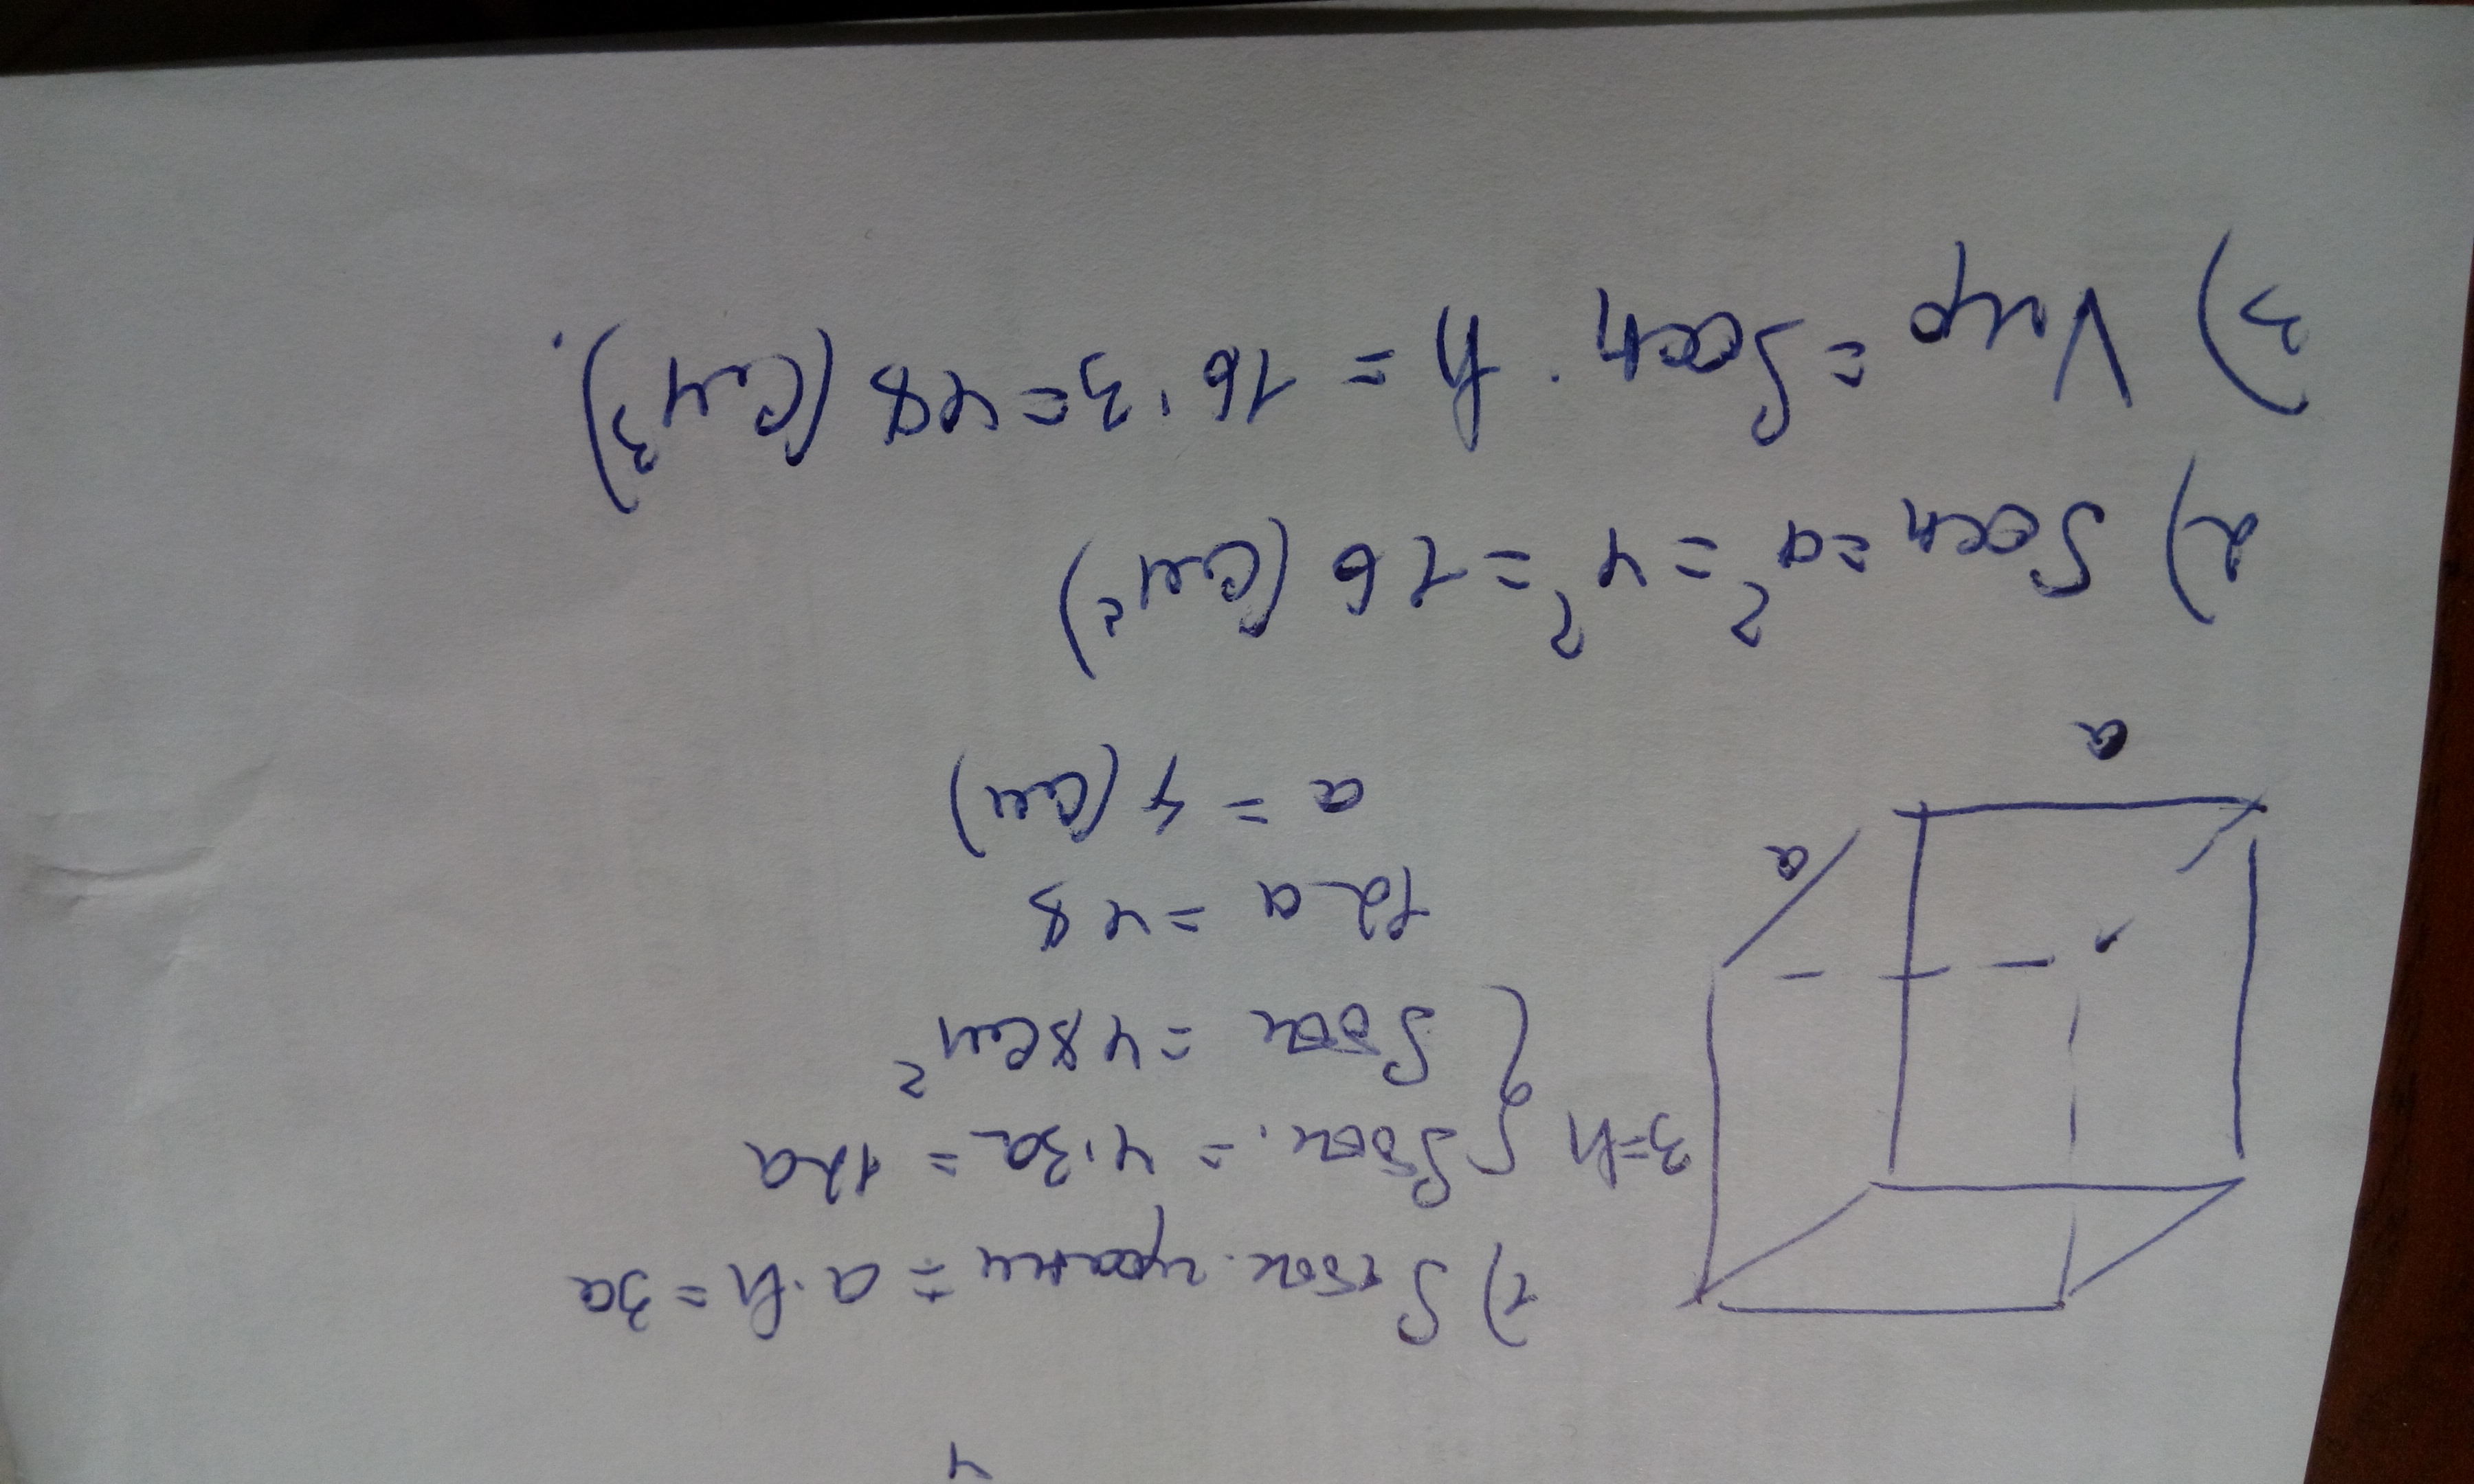 4
1) Sбок. грани = a·h = 3a
3=h
{ Sбок. = 4·3a = 12a
Sбок = 48см²
12a = 48
a = 4 (см)
a
a
2) Sосн = a² = 4² = 16 (см²)
3) Vпр = Sосн · h = 16·3=48 (см³).